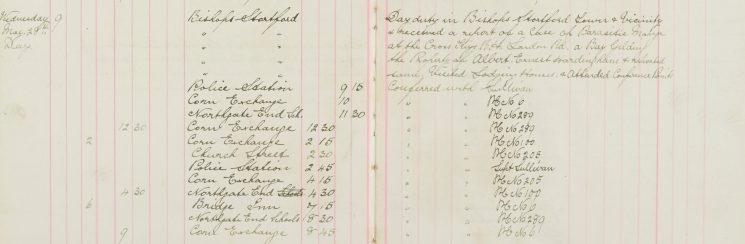 Wednesday 9 Bishops Stortford Day duty in Bishops Stortford Town & Vicinity
May 29th " " & received a report of a Case of Parasitic Mange
Day " " at the Cross Keys P.H. London Rd. a Bay Gelding
" " the Property of Albert Ernest
" " Visited Lodging Houses & Attended Conference Points
Police Station 9 15 Conferred with Sullivan
Corn Exchange 10 " " PC No 6
Northgate End Sch. 11 30 " " PC No 289
12 30 Corn Exchange 12 30 " " PC No 289
2 Corn Exchange 2 15 " " PC No 100
Church Street 2 30 " " PC No 205
Police Station 2 45 " " Supt Sullivan
Corn Exchange 4 15 " " PC No 205
4 30 Northgate End Schools 4 30 " " PC No 100
6 Bridge Inn 7 15 " " PC No 6
Northgate End Schools 8 30 " " PC No 289
9 Corn Exchange 8 45 " " PC No 6